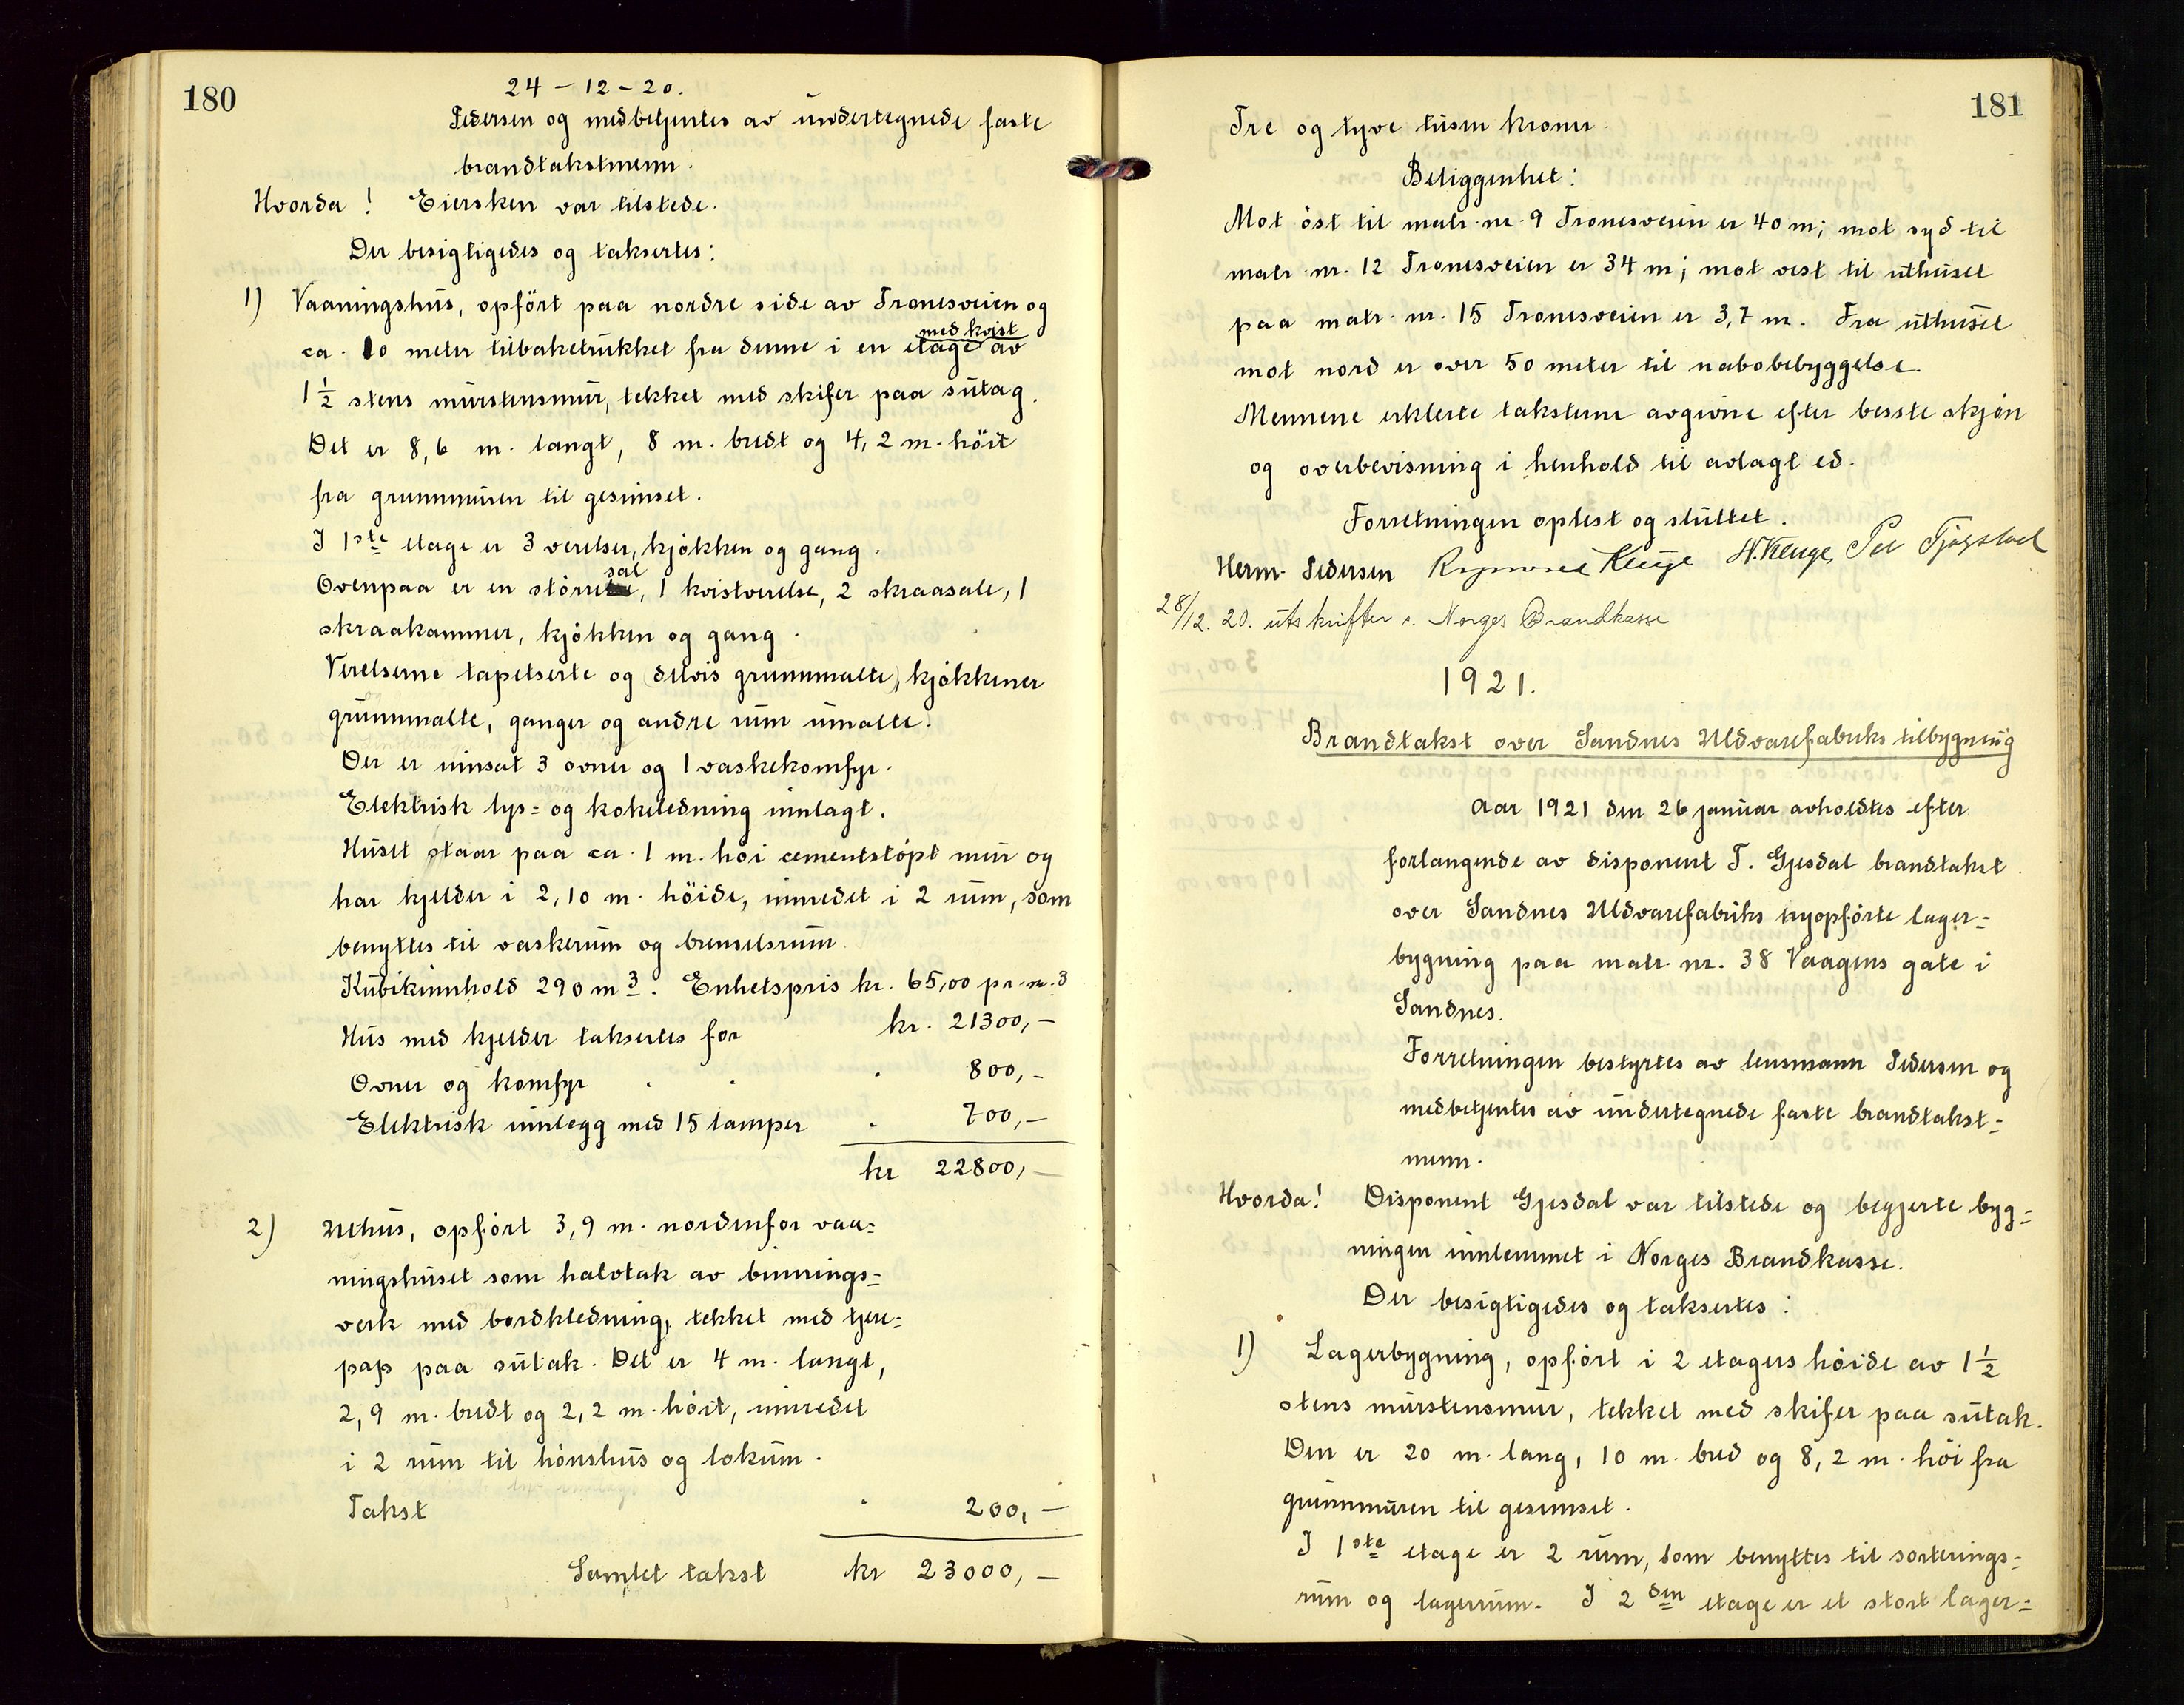 180
24-12-20.
Pedersen og medbetjentes av undertegnede faste
brandtakstmenn.
Hvorda! Eiersken var tilstede.
Der besigtigedes og taksertes:
1) Vaaningshus, opført paa nordre side av Tronesveien og
ca. 10 meter tilbaketrukket fra denne i en etage med kvist av
1 1/2 stens murstensmur, tekket med skifer paa sutag.
Det er 8,6 m. langt, 8 m. bredt og 4,2 m. høit
fra grunnmuren til gesimset.
I 1ste etage er 3 verelser, kjøkken og gang.
Ovenpaa er en større sal, 1 kvistverelse, 2 skraasale, 1
skraakammer, kjøkken og gang.
Verelserne tapetserte og (delvis grunnmalte), kjøkkener
grunnmalte, ganger og andre rum umalte.
Der er innsat 3 ovner og 1 vaskekomfyr.
Elektrisk lys= og kokeledning innlagt.
Huset staar paa ca. 1 m. høi cementstøpt mur og
har kjelder i 2,10 m. høide, innredet i 2 rum, som
benyttes til vaskerum og brenselsrum.
Kubikinnhold 290 m3. Enhetspris kr. 65,00 pr. m.3
Hus med kjelder taksertes for kr. 21300,-
Ovner og komfyr " " " 800,-
Elektrisk innlegg med 15 lamper " 700,-
kr 22800,-
2) Uthus, opført 3,9 m. nordenfor vaa=
ningshuset som halvtak av binnings=
verk med bordkledning, tekket med tjere=
pap paa sutak. Det er 4 m. langt,
2,9 m. bredt og 2,2 m. høit, innredet
i 2 rum til hønshus og lokum.
Takst " 200,-
Samlet takst kr 23000,-
181
Tre og tyve tusen kroner.
Beliggenhet:
Mot øst til matr. nr. 9 Tronesveien er 40 m; mot syd til
matr. nr. 12 Tronesveien er 34 m; mot vest til uthuset
paa matr. nr. 15 Tronesveien er 3,7 m. Fra uthuset
mot nord er over 50 meter til nabobebyggelse.
Mennene erklerte taksterne avgivne efter besste skjøn
og overbevisning i henhold til avlagt ed.
Forretningen oplest og sluttet.
Herm. Pedersen Kluge H. Kluge, Per Tjågstad
28/12. 20. utskrifter s. Norges Brandkasse
1921.
Brandtakst over Sandnes Uldvarefabriks tilbygning
Aar 1921 den 26 januar avholdtes efter
forlangende av disponent T. Gjesdal brandtakst
over Sandnes Uldvarefabriks nyopførte lager=
bygning paa matr. nr. 38 Vaagens gate i
Sandnes.
Forretningen bestyrtes av lensmann Pedersen og
medbetjentes av undertegnede faste brandtakst=
menn.
Hvorda! Disponent Gjesdal var tilstede og begjerte byg=
ningen innlemmet i Norges Brandkasse.
Der besigtigedes og taksertes:
1) Lagerbygning, opført i 2 etagers høide av 1 1/2
stens murstensmur, tekket med skifer paa sutak.
Den er 20 m. lang, 10 m. bred og 8,2 m. høi fra
grunnmuren til gesimset.
I 1ste etage er 2 rum, som benyttes til sorterings=
rum og lagerrum. I 2den etage er et stort lager=